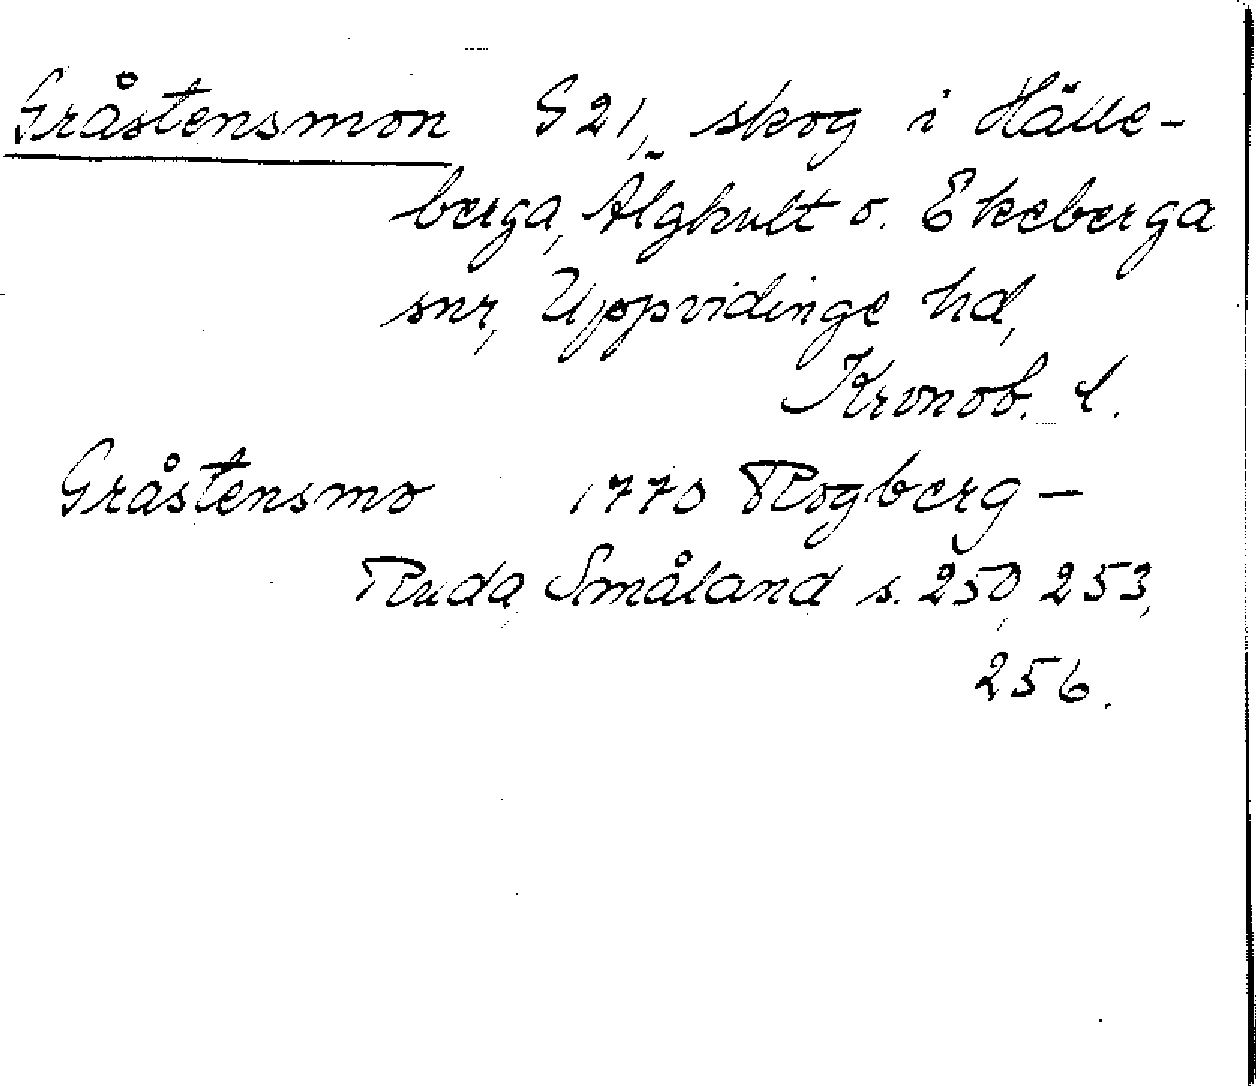 Gråstensmon G 21, skog i Hälle-
berga, Älghult o. Ekeberga
snr, Uppvidinge hd,
Kronob. l.
Gråstensmo 1770 Rogberg-
Ruda, Småland s. 250, 253,
256.